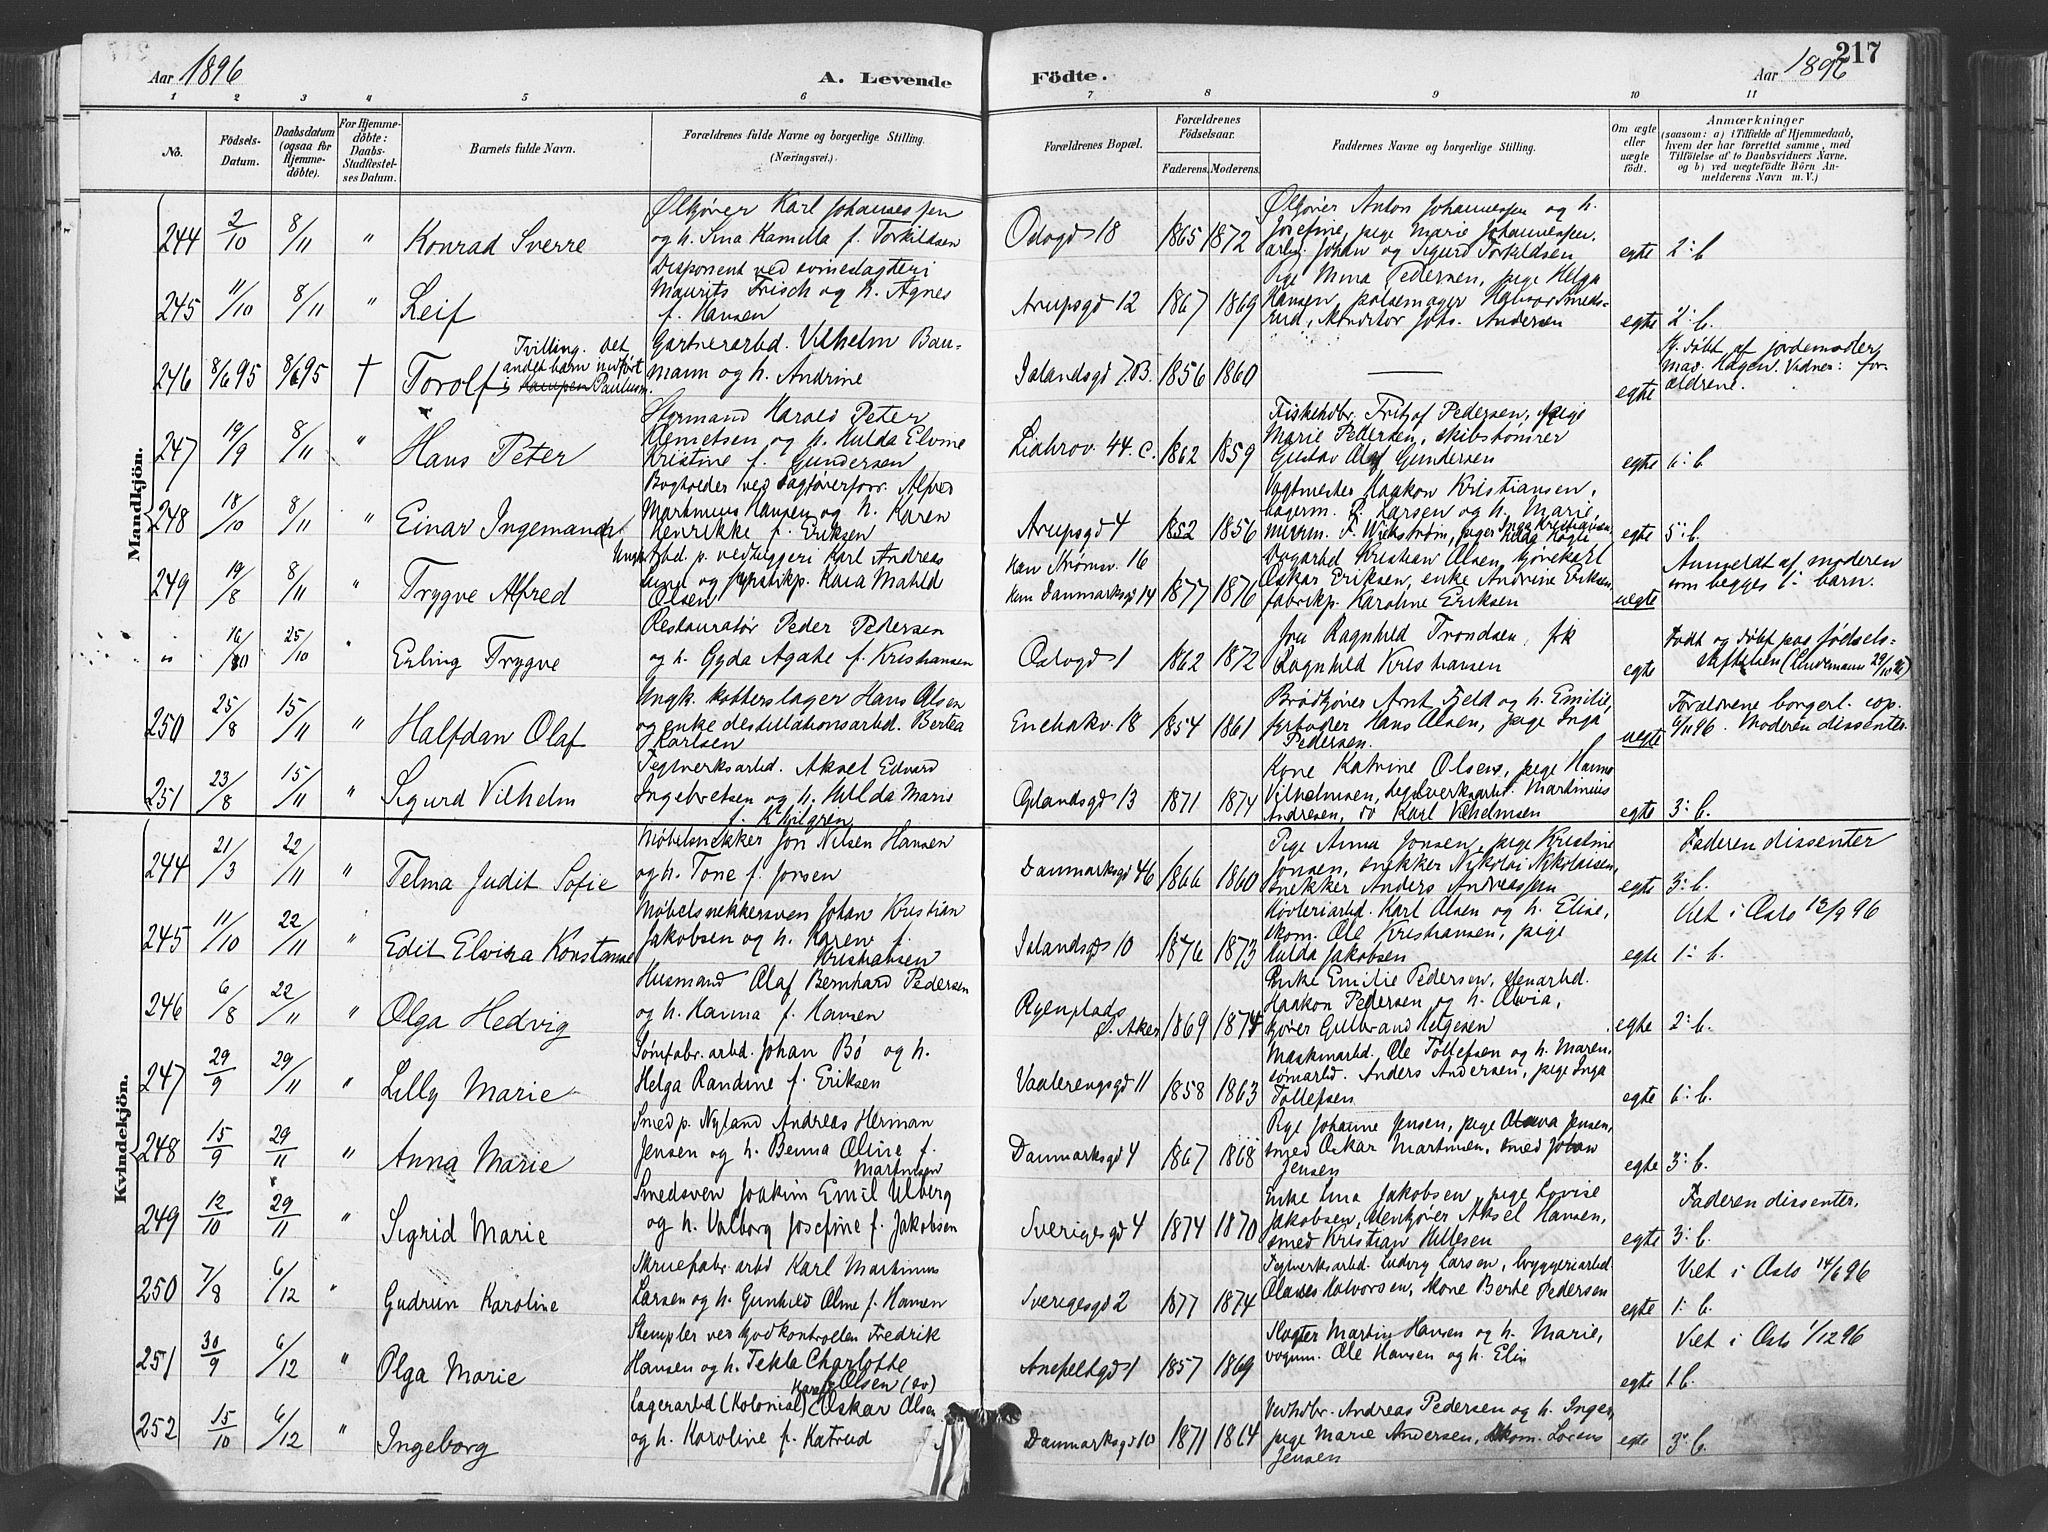 217
Aar 1896
A. Levende Födte.
Aar 1896
1 2 3 4 5 6 7 8 9 10 11
No.
Födsels-Datum.
Daabsdatum (ogsaa for Hjemmedöbte).
For Hjemmedöbte: Daabs-Stadfestelses Datum.
Barnets fulde Navn.
Forældrenes fulde Navne og borgerlige Stilling. (Næringsvei.)
Forældrenes Bopæl.
Forældrenes Födselsaar.
Faderens. Moderens.
Faddernes Navne og borgerlige Stilling.
Om ægte eller uægte födt.
Anmærkninger (saasom: a) i Tilfælde af Hjemmedaab, hvem der har forrettet samme, med Tilföielse af to Daabsvidners Navne, og b) ved uægtefödte Börn Anmelderens Navn m. V.)
Mandkjön.
244 2/10 8/11 " Konrad Sverre
Ølkjører Karl Johannessen
og h. Lina Kamilla f. Torkildsen
Oslogd 18 1865 1872
Ølkjører Anton Johannessen og h.
Josefine, pige Marie Johannessen,
arbm. Johan og Sigurd Torkildsen
egte 2: b.
245 11/10 8/11 " Leif
Disponent ved svineslagteri
Maurits Frisch og h. Agnes
f. Hansen
Arupsgd 12 1867 1869
Pige Mina Pedersen, pige Helga
Hansen, pølsemager Halvor Smeds-
rud, Konditor Johs. Andersen
egte 2: b.
246 8/6 95 8/6 95 † Torolf
Tvilling. Det
andet barn indført
i Kampen Paulusm.
Gartnerarbd. Vilhelm Bau-
mann og h. Andrine
Islandsgd 7.03. 1856 1860
egte
Hj. døbt af jordemoder
Mar. Hagen. Vidner: for-
ældrene.
247 19/9 8/11 " Hans Peter
Styrmand Harald Peter
Klemetsen og h. Hulda Elvine
Kristine f. Gundersen
Liabrov. 44. C. 1862 1859
Fiskehdbr. Fritjof Pedersen, pige
Marie Pedersen, skibstømrer
Gustav Olaf Gundersen
egte 6: b.
248 18/10 8/11 " Einar Ingemann
Bogholder ved Sagførerforr. Alfred
Martinius Hansen og h. Karen
Henrikke f. Eriksen
Arupsgd 4 1852 1856
Vagtmester Haakon Kristiansen,
bagerm. P. Larsen og h. Marie,
murm. F. Wickstrøm, piger Inga Kristiansen,
Hilda Kogli
egte 5: b.
249 19/8 8/11 " Trygve Alfred
Ungk. arbd. p. vedhuggeri Karl Andreas
Lund og fabrikp. Kaia Matild
Olsen
han Strømsv. 16
hun Danmarksgd 14 1877 1876
Dagarbd. Kristian Olsen, kjørekarl
Oskar Eriksen, enke Andrine Eriksen,
fabrikp. Karoline Eriksen
uegte
Anmeldt af moderen
som begges 1: barn.
" 16/10 25/10 " Erling Trygve
Restauratør Peder Pedersen
og h. Gyda Agate f. Kristiansen
Oslogd 1 1862 1872
fru Ragnhild Trondsen, frk
Ragnhild Kristiansen
egte
Født og døbt paa fødsels-
stiftelsen (Lindemann 29/10 96)
250 25/8 15/11 " Halfdan Olaf
Ungk. kobberslager Hans Olsen
og enke destillationsarbd. Bertea
Karlsen
Enebakv. 18 1854 1861
Brødkjører Arnt Fjeld og h. Emilie,
fyrbøder Hans Olsen, pige Inga
Pedersen.
uegte
Forældrene borgerl. cop.
6/11 96. Moderen dissenter.
251 23/8 15/11 " Sigurd Vilhelm
Teglverksarbd. Aksel Edvard
Ingebretsen og h. Hilda Marie
f. Kihlgren
Opslandsgd 13 1871 1874
Kone Katrine Olsen, pige Hanna
Vilhelmsen, teglverksarbd. Martinius
Andresen, do Karl Vilhelmsen
egte 3: b.
Kvindekjön.
244 21/3 22/11 " Telma Judit Sofie
Møbelsnekker Jon Nilsen Hansen
og h. Tone f. Jonsen
Danmarksgd 46 1866 1860
Pige Anna Jonsen, pige Kristine
Jonsen, snekker Nikolai Nikolaisen,
snekker Anders Andreassen
egte 3: b.
Faderen dissenter
245 11/10 22/11 " Edit Elvira Konstanse
Møbelsnekkersven Johan Kristian
Jakobsen og h. Karen f.
Kristiansen
Islandsgd 10 1876 1873
Høvleriarbd. Karl Olsen og h. Elise,
skom. Ole Kristiansen, pige
Hulda Jakobsen
egte 1: b.
Viet i Oslo 12/9 96
246 6/8 22/11 " Olga Hedvig
Husmand Olaf Bernhard Pedersen
og h. Hanna f. Hansen
Ryenplads
Ø. Aker 1869 1874
Enke Emilie Pedersen, stenarbd.
Haakon Pedersen og h. Olivia,
kjører Gulbrand Helgesen
egte 2: b.
247 29/9 29/11 " Lilly Marie
Sømfabr. arbd. Johan Bö og h.
Helga Randine f. Eriksen
Vaalerengsgd 11 1858 1863
Maskinarbd. Ole Tollefsen og h. Maren,
sømarbd. Anders Andersen, pige Inga
Tollefsen
egte 6: b.
248 15/9 29/11 " Anna Marie
Smed p. Nyland Andreas Herman
Jensen og h. Benna Oline f.
Martinsen
Danmarksgd 4 1867 1868
Pige Johanne Jensen, pige Olava Jensen,
smed Oskar Martinsen, smed Johan
Jensen
egte 3: b.
249 12/10 29/11 " Sigrid Marie
Smedsven Joakim Emil Ulberg
og h. Valborg Josefine f. Jakobsen
Sverigesgd 4 1874 1870
Enke Lina Jakobsen, pige Lovise
Jakobsen, stenkjører Aksel Hansen,
smed Kristian Hillesen
egte 3: b.
Faderen dissenter.
250 7/8 6/12 " Gudrun Karoline
Skruefabr. arbd. Karl Martinius
Larsen og h. Gunhild Oline f. Hansen
Sverigesgd 2 1877 1874
Teglverksarbd. Ludvig Larsen, bryggeriarbd.
Olaves Halvorsen, Kone Berte Pedersen
egte 1: b.
Viet i Oslo 14/6 96
251 30/9 6/12 " Olga Marie
Stempler ved Godkontrollen Fredrik
Hansen og h. Tekla Charlotte
Olsen (sv)
1857 1869
Slagter Martin Hansen og h. Marie,
vognm. Ole Hansen og h. Elin
egte 1 b.
Viet i Oslo 1/12 96
252 15/10 6/12 " Ingeborg
Lagerarbd (Kolonial) Oskar Olsen
og h. Karoline f. Katrud
Danmarksgd 10 1871 1864
Vedhdbr. Andreas Pedersen og h. Inger,
pige Marie Andersen, skom. Lorens
Jensen
egte 3: b.